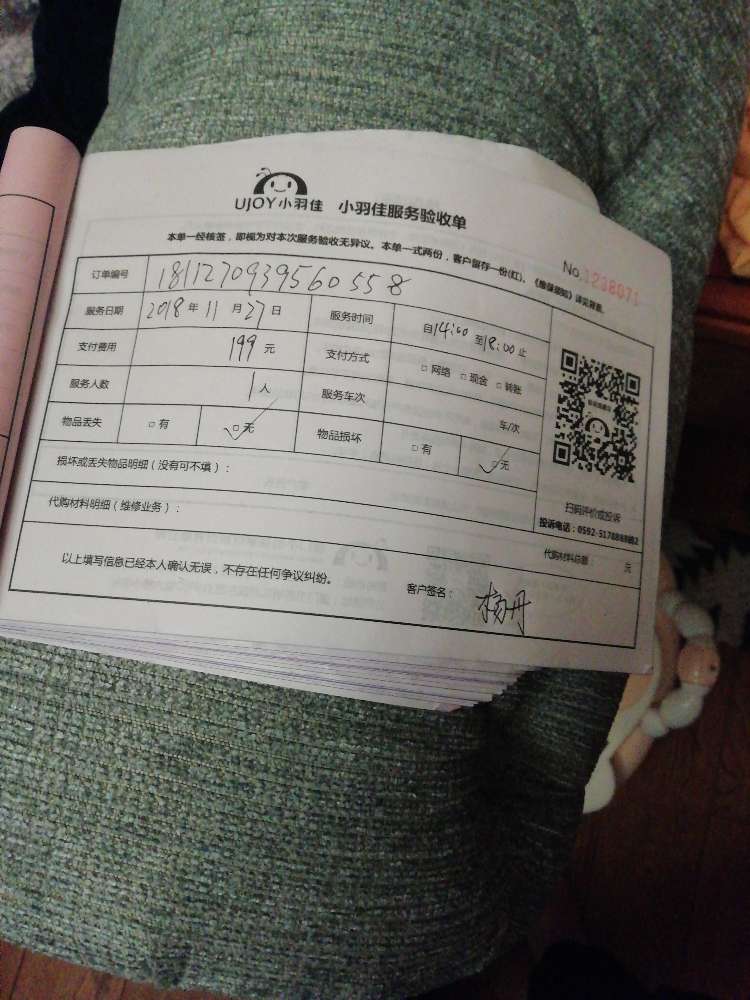 UJOY小羽佳 小羽佳服务验收单
本单一经核签，即视为对本次服务验收无异议。本单一式两份，客户留存一份(红)。《维保须知》详见背面。
No.1238071
订单编号 181127093956055 8
服务日期 2018 年 11 月 27 日 服务时间 自 14:00 至 18:00 止
支付费用 199 元 支付方式 □ 网络 □ 现金 □ 转账
服务人数 1 人 服务车次 车/次
物品丢失 □ 有 □ 无 物品损坏 □ 有 □ 无
扫码评价或投诉
投诉电话：0592-5178888转2
损坏或丢失物品明细（没有可不填）：
代购材料明细（维修业务）： 代购材料总额： 元
以上填写信息已经本人确认无误，不存在任何争议纠纷。 客户签名： 杨丹